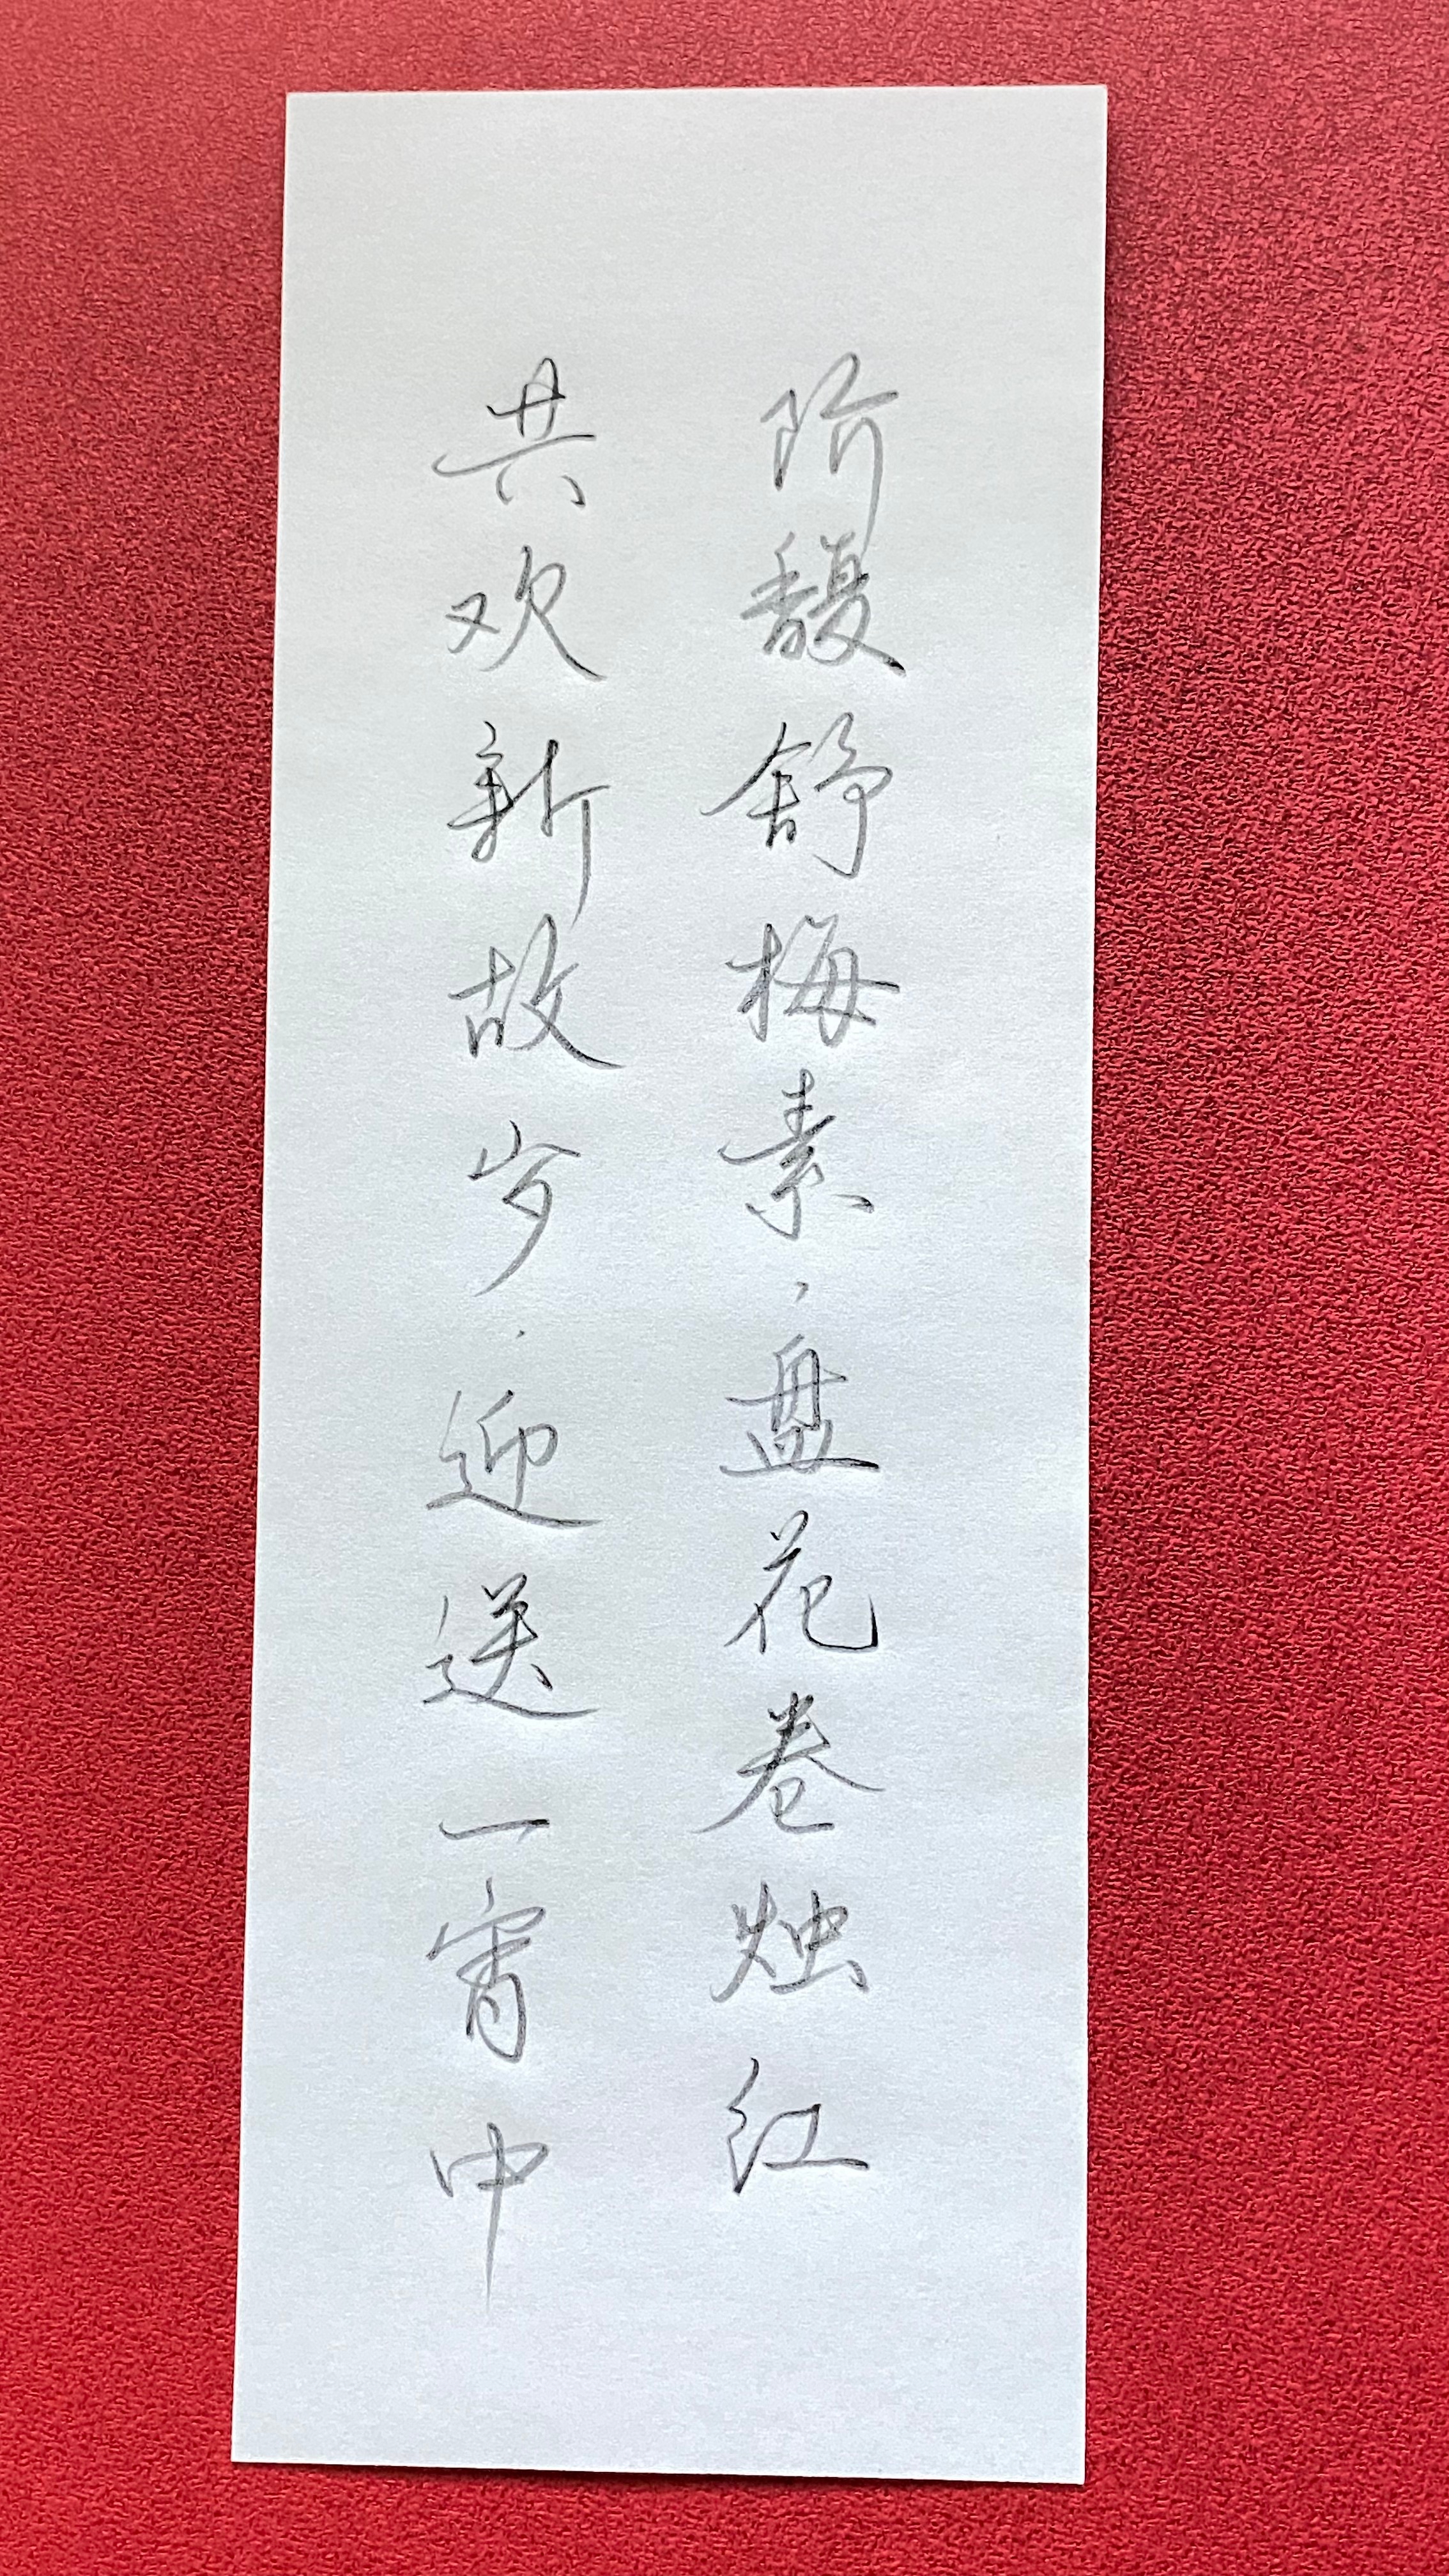 阶馥舒梅素，盘花卷烛红
共欢新故岁，迎送一宵中